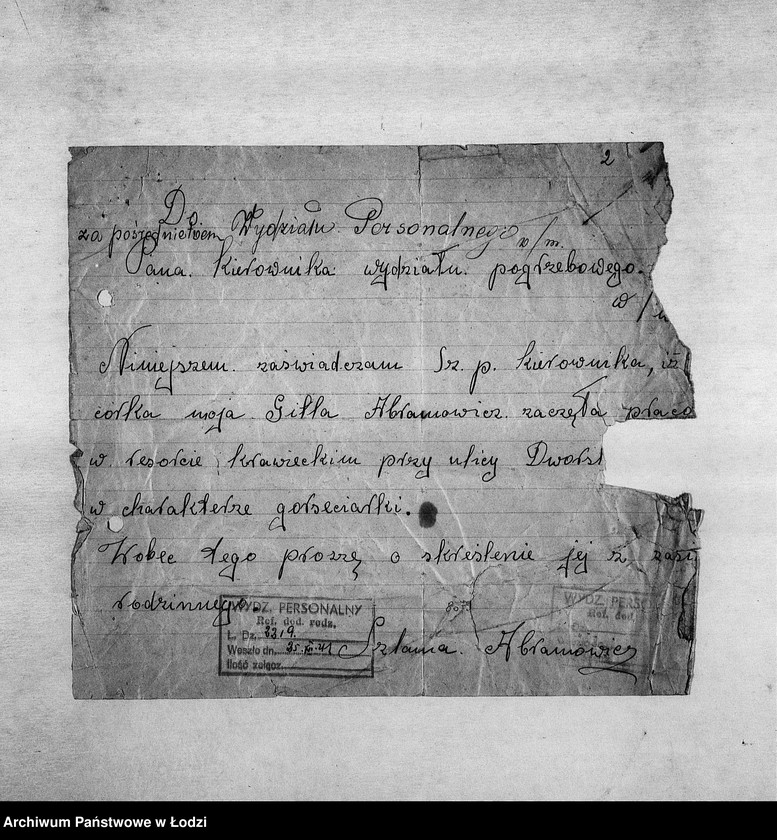 2
Do
za pośrednictwem Wydziału Personalnego w/m.
Pana. Kierownika wydziału pogrzebowego.
w/m
Niniejszem zaświadczam Sz. p. kierownika, iż
córka moja Gitla Abramowicz zaczęła praco
w resorcie krawieckim przy ulicy Dworsk
w charakterze gorseciarki.
Wobec tego proszę o skreślenie jej z zasi
rodzinnego.
WYDZ. PERSONALNY
Ref. dod. rodz.
L. Dz. 2219.
Weszło dn. 25.XI.41
Ilość załącz.
WYDZ. PERSO
Ref. dod.
Szlama Abramowicz
Archiwum Państwowe w Łodzi